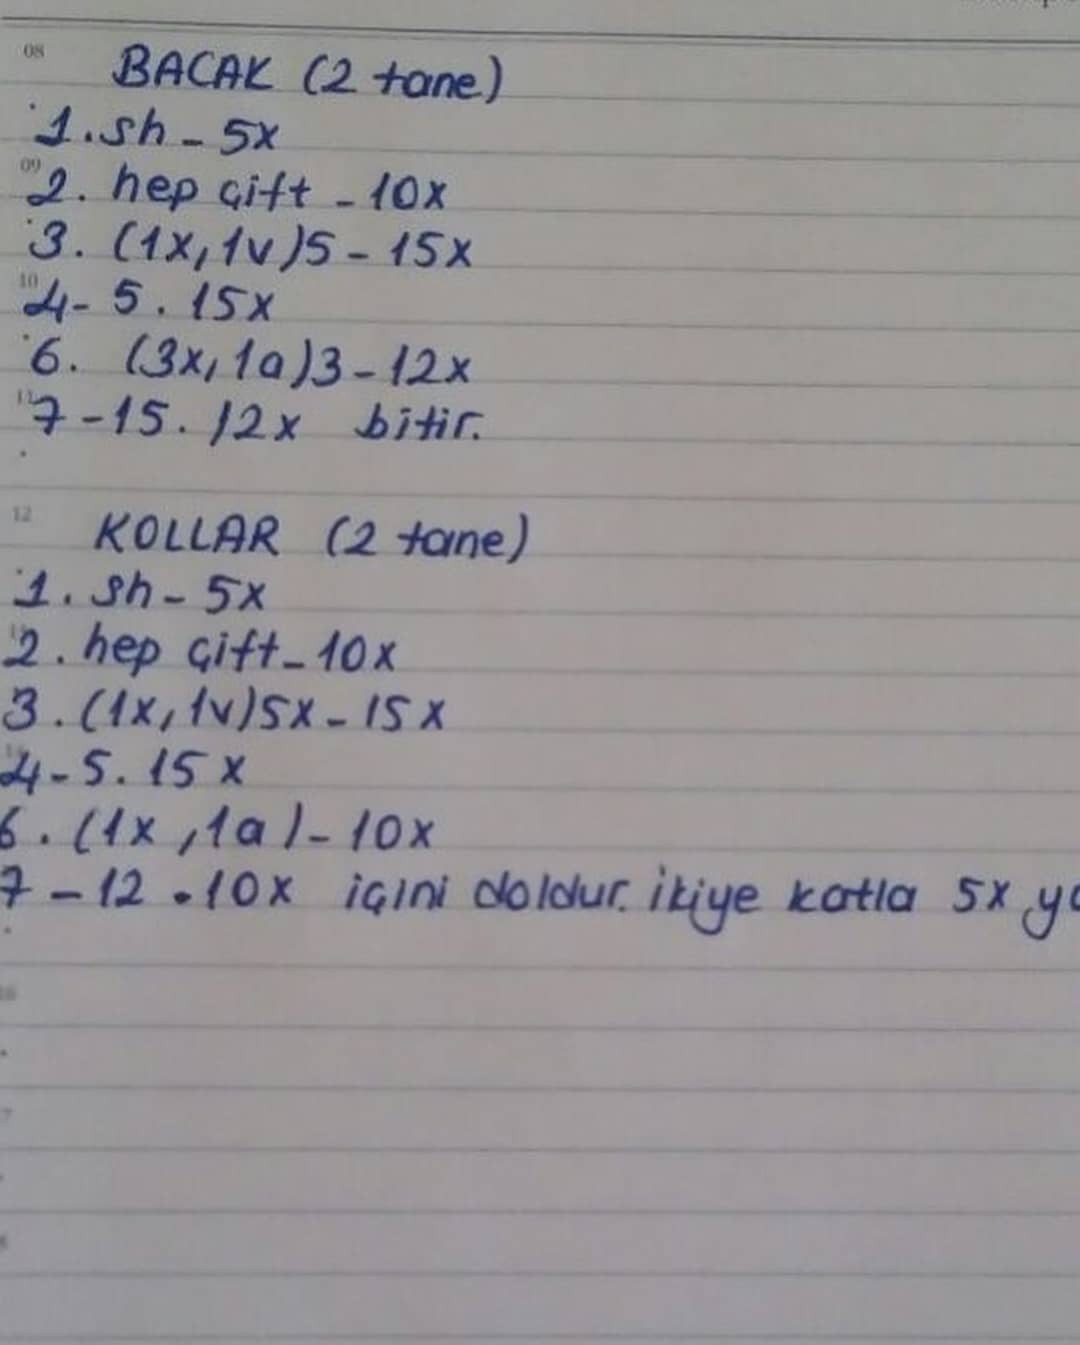 08
BACAK (2 tane)
1. sh - 5x
09
2. hep çift - 10x
3. (1x, 1v)5 - 15x
10
4- 5. 15x
6. (3x, 1a)3 - 12x
11
7 - 15. 12x bitir.
12
KOLLAR (2 tane)
1. sh - 5x
2. hep çift - 10x
3. (1x, 1v)5x - 15x
4 - 5. 15x
6. (1x, 1a) - 10x
7 - 12. 10x içini doldur. ikiye katla 5x